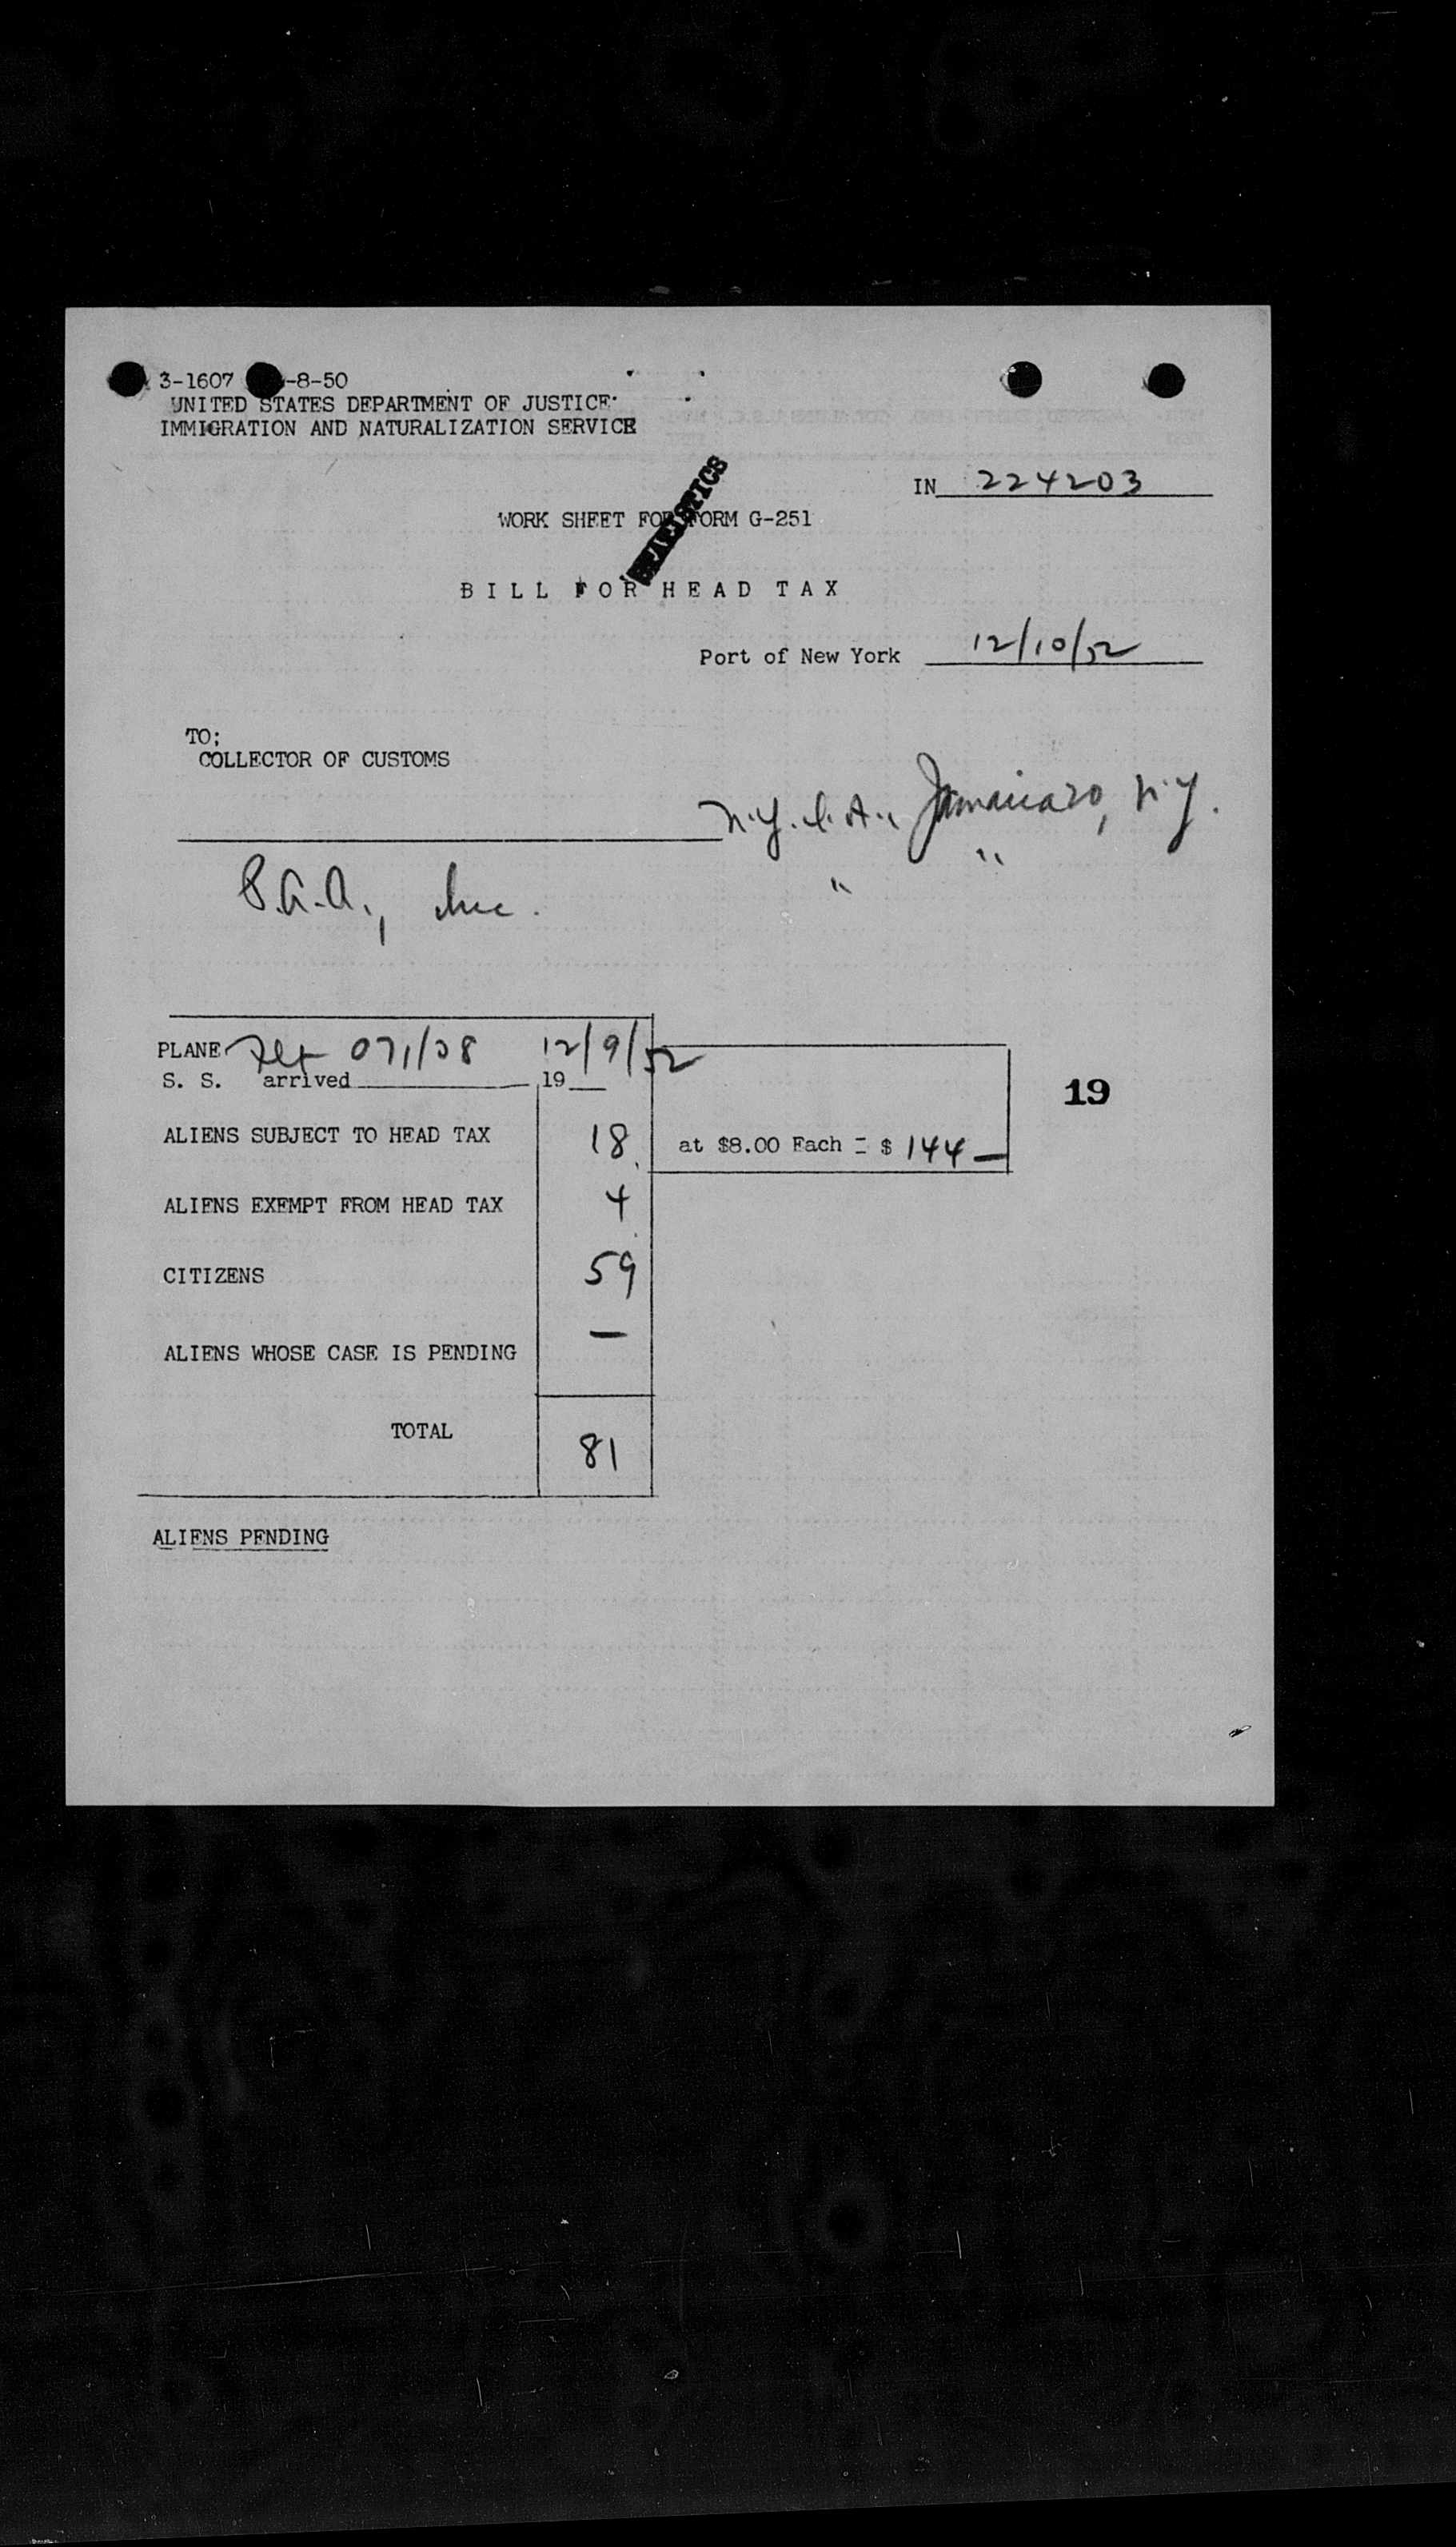 3-1607 -8-50
UNITED STATES DEPARTMENT OF JUSTICE
IMMIGRATION AND NATURALIZATION SERVICE
IN 224203
STATISTICS
WORK SHEET FOR FORM G-251
BILL FOR HEAD TAX
Port of New York 12/10/52
TO;
COLLECTOR OF CUSTOMS
N.Y.I.A., Jamaica 30, N.Y.
" "
P.A.A., Inc.
PLANE Flt 071/08 12/9/52
S. S. arrived 19
19
ALIENS SUBJECT TO HEAD TAX 18 at $8.00 Each = $ 144 —
ALIENS EXEMPT FROM HEAD TAX 4
CITIZENS 59
ALIENS WHOSE CASE IS PENDING —
TOTAL 81
ALIENS PENDING